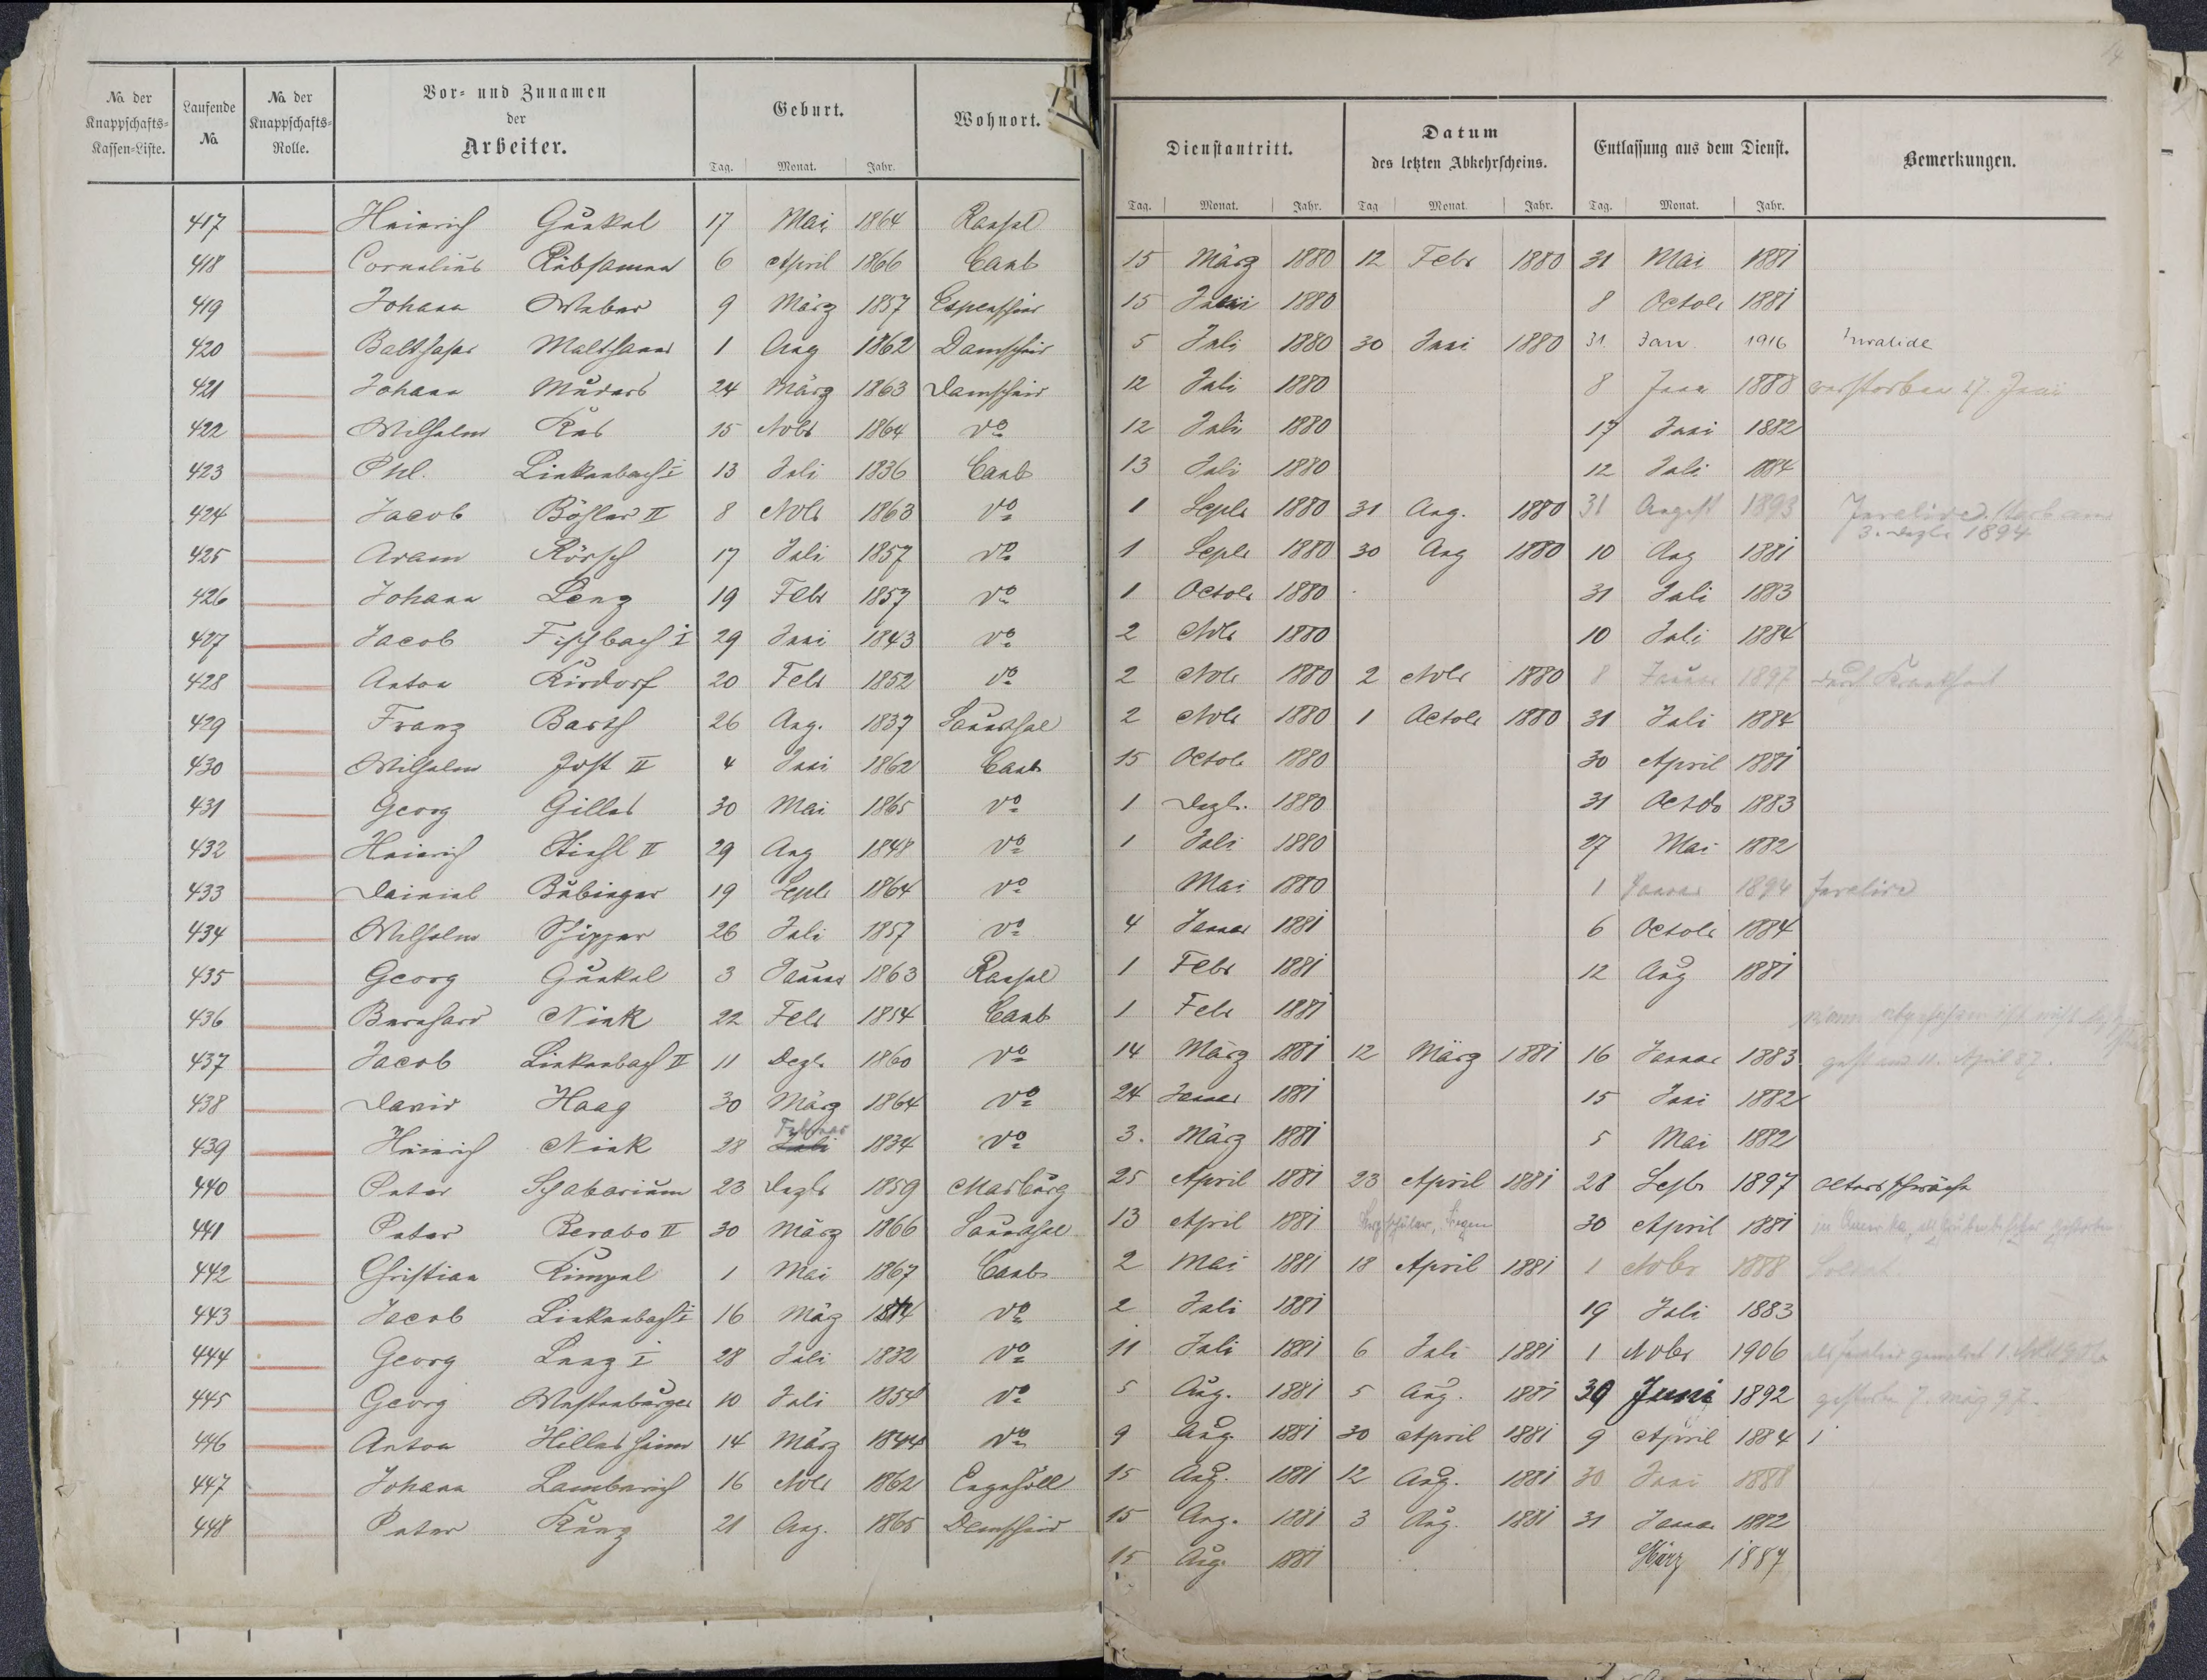 No. der Knappschafts-Kassen-Liste. Laufende No. No. der Knappschafts-Rolle. Vor- und Zunamen der Arbeiter. Geburt. Wohnort.
Tag. Monat. Jahr.
417 Heinrich Gunkel 17 Mai 1864 Ransel
418 Cornelius Rübsamen 6 April 1866 Caub
419 Johann Weber 9 März 1857 Espenschied
420 Balthasar Malthaner 1 Aug 1862 Damscheid
421 Johann Muders 24 März 1863 Damscheid
422 Wilhelm 15 Nobr 1864 do
423 Phl. Linkenbach I 13 Juli 1836 Caub
424 Jacob Böhler II 8 Nobr 1863 do
425 Adam Rörsch 17 Juli 1857 do
426 Johann Lenz 19 Febr 1857 do
427 Jacob Fischbach I 29 Juni 1843 do
428 Anton Kirdorf 20 Febr 1852 do
429 Franz Barth 26 Aug. 1837 Sauerthal
430 Wilhelm Jost II 4 Juni 1862 Caub
431 Georg Gilles 30 Mai 1865 do
432 Heinrich Stiehl II 29 Aug 1848 do
433 Dainiel Bubinger 19 Septr 1864 do
434 Wilhelm Schipper 26 Juli 1857 do
435 Georg Gunkel 3 Januar 1863 Ransel
436 Bernhard Nink 22 Febr 1854 Caub
437 Jacob Linkenbach II 11 Dezbr 1860 do
438 David Haag 30 März 1864 do
439 Heinrich Nink 28 Juli Februar 1834 do
440 Peter Schabarium 23 Dezbr 1859 Marburg
441 Peter Berabo II 30 März 1866 Sauerthal
442 Christian Kimpel 1 Mai 1867 Caub
443 Jacob Linkenbach I 16 März do
444 Georg Lenz I 28 Juli 1832 do
445 Georg Westenburger 10 Juli 1854 do
446 Anton Hillesheim 14 März 1844 do
447 Johann Lambrich 16 Nobr 1862 Engehöll
448 Peter Kunz 21 Aug. 1865 Damscheid
Dienstantritt. Datum des letzten Abkehrscheins. Entlassung aus dem Dienst. Bemerkungen.
Tag. Monat. Jahr. Tag Monat. Jahr. Tag. Monat. Jahr.
15 März 1880 12 Febr 1880 31 Mai 1881
15 Juni 1880 8 Octobr 1881
5 Juli 1880 30 Juni 1880 31. Jan. 1916 Invalide
12 Juli 1880 8 Juni 1888 verstorben 27. Juni
12 Juli 1880 17 Juni 1882
13 Juli 1880 12 Juli 1884
1 Septr 1880 31 Aug. 1880 31 August 1893 Invalide. starb am 3. Dezbr 1894
1 Septr 1880 30 Aug 1880 10 Aug 1881
1 Octobr 1880 31 Juli 1883
2 Nobr 1880 10 Juli 1884
2 Nobr 1880 2 Nobr 1880 8 Januar 1897 durch Krankheit
2 Nobr 1880 1 Octobr 1880 31 Juli 1884
15 Octobr 1880 30 April 1881
1 Dezbr. 1880 31 Octobr 1883
1 Juli 1880 27 Mai 1882
Mai 1880 1 Januar 1894 Invalide
4 Januar 1881 6 Octobr 1884
1 Febr 1881 12 Aug 1881
1 Febr 1881
14 März 1881 12 März 1881 16 Januar 1883 gest. am 11. April 87.
24 Januar 1881 15 Juni 1882
3. März 1881 5 Mai 1882
25 April 1881 23 April 1881 28 Septr 1897 Altersschwäche
13 April 1881 Bergschüler, Siegen 30 April 1881 in Amerika, gestorben
2 Mai 1881 18 April 1881 1 Nobr 1888 Soldat
2 Juli 1881 19 Juli 1883
11 Juli 1881 6 Juli 1881 1 Nobr 1906 als Invalid gemeldet 1. Nobr 1906
5 Aug. 1881 5 Aug. 1881 30 Juni 1892 gestorben 7. März 97.
9 Aug 1881 30 April 1881 9 April 1884
15 Aug. 1881 12 Aug. 1881 30 Juni 1888
15 Aug. 1881 3 Aug. 1881 31 Januar 1882
15 Aug. 1881 März 1887